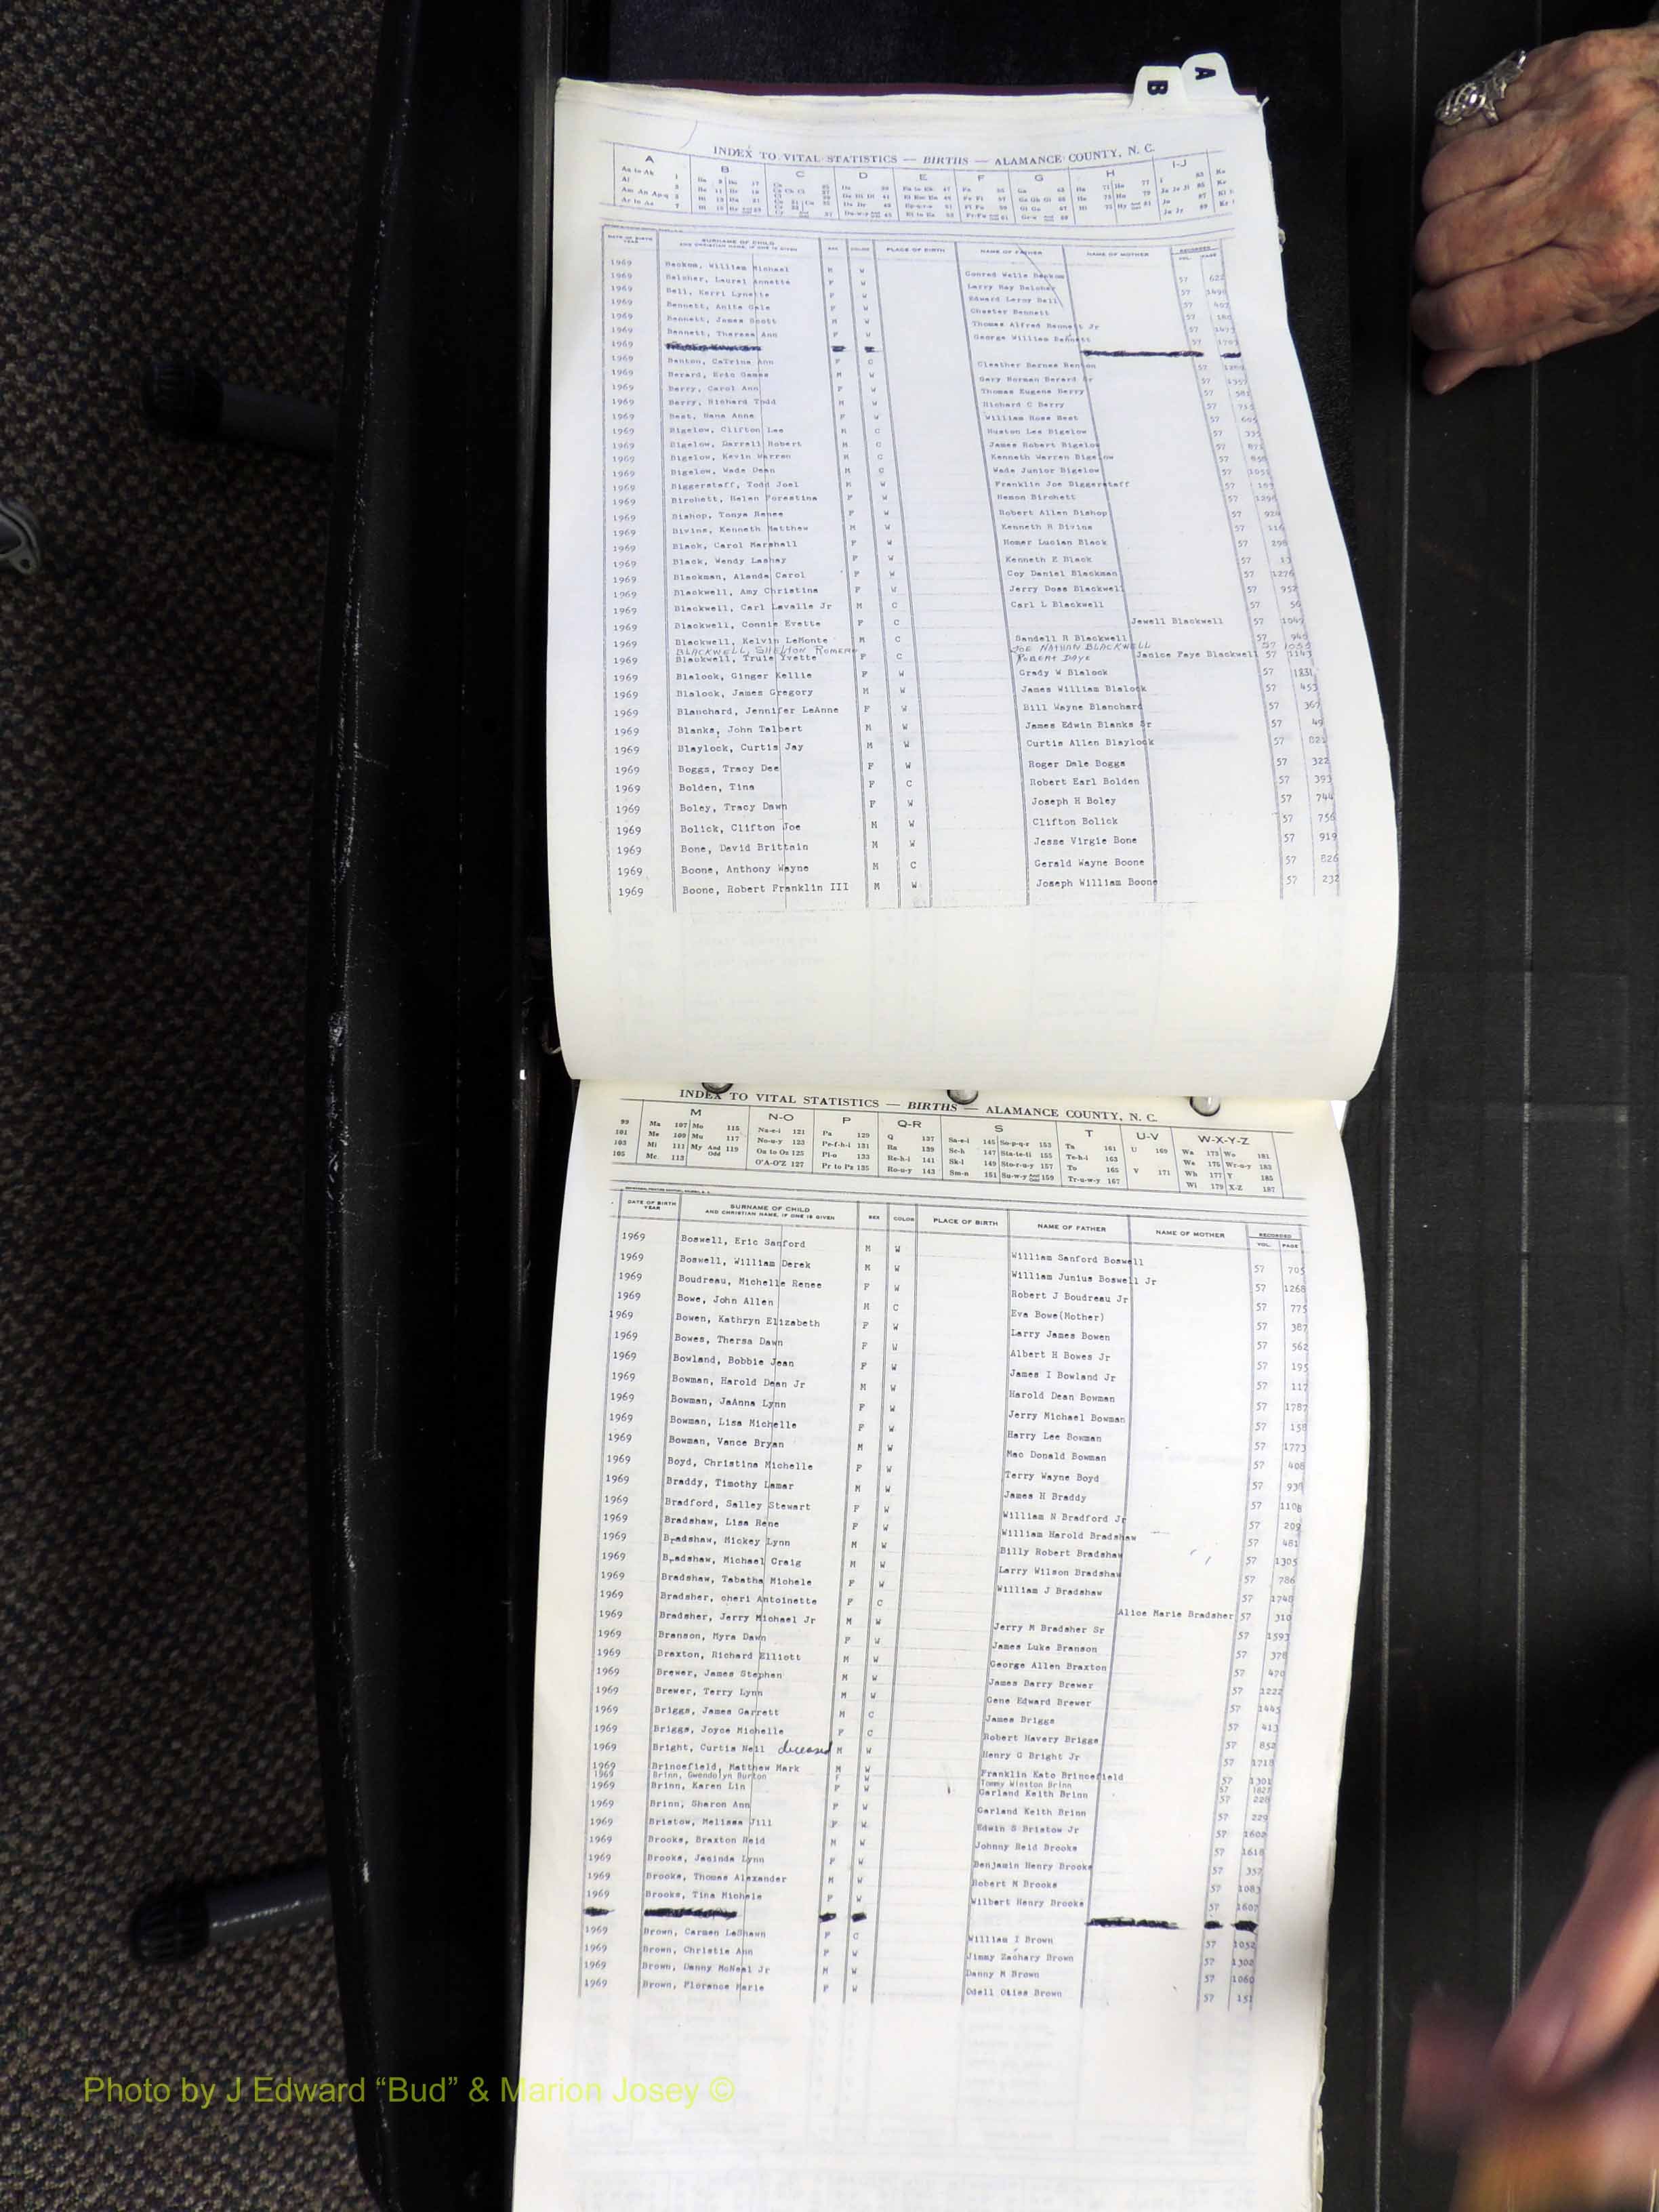 A
B
INDEX TO VITAL STATISTICS — BIRTHS — ALAMANCE COUNTY, N. C.
A B C D E F G H I-J
DATE OF BIRTH YEAR SURNAME OF CHILD AND CHRISTIAN NAME, IF ONE IS GIVEN SEX COLOR PLACE OF BIRTH NAME OF FATHER NAME OF MOTHER RECORDED VOL. PAGE
1969 Beckom, William Michael M W Conrad Wells Beckom 57 622
1969 Belcher, Laurel Annette F W Larry Ray Belcher 57
1969 Bell, Kerri Lynette F W Edward Leroy Bell 57 407
1969 Bennett, Anita Gale F W Chester Bennett 57 180
1969 Bennett, James Scott M W Thomas Alfred Bennett Jr 57
1969 Bennett, Theresa Ann F W George William Bennett 57
1969
1969 Benton, CaTrina Ann F C Cleather Barnes Benton 57
1969 Berard, Eric James M W Gary Norman Berard Sr 57
1969 Berry, Carol Ann F W Thomas Eugene Berry 57 581
1969 Berry, Richard Todd M W Richard C Berry 57 715
1969 Best, Nana Anne F W William Rose Best 57 605
1969 Bigelow, Clifton Lee M C Huston Lee Bigelow 57 335
1969 Bigelow, Darrell Robert M C James Robert Bigelow 57 871
1969 Bigelow, Kevin Warren M C Kenneth Warren Bigelow 57 858
1969 Bigelow, Wade Dean M C Wade Junior Bigelow 57 1055
1969 Biggerstaff, Todd Joel M W Franklin Joe Biggerstaff 57 187
1969 Birchett, Helen Forestina F W Hamon Birchett 57 1296
1969 Bishop, Tonya Renee F W Robert Allen Bishop 57 924
1969 Bivins, Kenneth Matthew M W Kenneth R Bivins 57 116
1969 Black, Carol Marshall F W Homer Lucian Black 57 298
1969 Black, Wendy Lashay F W Kenneth E Black 57 13
1969 Blackman, Alanda Carol F W Coy Daniel Blackman 57 1276
1969 Blackwell, Amy Christina F W Jerry Doss Blackwell 57 952
1969 Blackwell, Carl Lavalle Jr M C Carl L Blackwell 57 56
1969 Blackwell, Connie Evette F C Jewell Blackwell 57 1049
1969 Blackwell, Kelvin LeMonte M C Sandell R Blackwell 57 940
BLACKWELL, SHELTON ROMERO JOE NATHAN BLACKWELL 57 1055
1969 Blackwell, Truie Yvette F C ROBERT DAYE Janice Faye Blackwell 57 1143
1969 Blalock, Ginger Kellie F W Grady W Blalock 57 1831
1969 Blalock, James Gregory M W James William Blalock 57 453
1969 Blanchard, Jennifer LeAnne F W Bill Wayne Blanchard 57 367
1969 Blanks, John Talbert M W James Edwin Blanks Sr 57 49
1969 Blaylock, Curtis Jay M W Curtis Allen Blaylock 57 821
1969 Boggs, Tracy Dee F W Roger Dale Boggs 57 322
1969 Bolden, Tina F C Robert Earl Bolden 57 393
1969 Boley, Tracy Dawn F W Joseph H Boley 57 744
1969 Bolick, Clifton Joe M W Clifton Bolick 57 756
1969 Bone, David Brittain M W Jesse Virgie Bone 57 919
1969 Boone, Anthony Wayne M C Gerald Wayne Boone 57 826
1969 Boone, Robert Franklin III M W Joseph William Boone 57 232
INDEX TO VITAL STATISTICS — BIRTHS — ALAMANCE COUNTY, N. C.
M N-O P Q-R S T U-V W-X-Y-Z
99 Ma 107 Mo 115 Na-e-i 121 Pa 129 Q 137 Sa-e-i 145 So-p-q-r 153 Ta 161 U 169 Wa 173 Wo 181
101 Me 109 Mu 117 No-u-y 123 Pe-f-h-i 131 Ra 139 Sc-h 147 Sta-te-ti 155 Te-h-i 163 We 175 Wr-u-y 183
103 Mi 111 My And Odd 119 Oa to Oz 125 Pl-o 133 Re-h-i 141 Sk-l 149 Sto-r-u-y 157 To 165 V 171 Wh 177 Y 185
105 Mc 113 O'A-O'Z 127 Pr to Pz 135 Ro-u-y 143 Sm-n 151 Su-w-y And Odd 159 Tr-u-w-y 167 Wi 179 X-Z 187
DATE OF BIRTH YEAR SURNAME OF CHILD AND CHRISTIAN NAME, IF ONE IS GIVEN SEX COLOR PLACE OF BIRTH NAME OF FATHER NAME OF MOTHER RECORDED VOL. PAGE
1969 Boswell, Eric Sanford M W William Sanford Boswell 57 705
1969 Boswell, William Derek M W William Junius Boswell Jr 57 1268
1969 Boudreau, Michelle Renee F W Robert J Boudreau Jr 57 775
1969 Bowe, John Allen M C Eva Bowe(Mother) 57 387
1969 Bowen, Kathryn Elizabeth F W Larry James Bowen 57 562
1969 Bowes, Thersa Dawn F W Albert H Bowes Jr 57 195
1969 Bowland, Bobbie Jean F W James I Bowland Jr 57 117
1969 Bowman, Harold Dean Jr M W Harold Dean Bowman 57 1787
1969 Bowman, JaAnna Lynn F W Jerry Michael Bowman 57 158
1969 Bowman, Lisa Michelle F W Harry Lee Bowman 57 1773
1969 Bowman, Vance Bryan M W Mac Donald Bowman 57 408
1969 Boyd, Christina Michelle F W Terry Wayne Boyd 57 938
1969 Braddy, Timothy Lamar M W James H Braddy 57 1108
1969 Bradford, Salley Stewart F W William N Bradford Jr 57 209
1969 Bradshaw, Lisa Rene F W William Harold Bradshaw 57 481
1969 Bradshaw, Mickey Lynn M W Billy Robert Bradshaw 57 1305
1969 Bradshaw, Michael Craig M W Larry Wilson Bradshaw 57 786
1969 Bradshaw, Tabatha Michele F W William J Bradshaw 57 1748
1969 Bradsher, cheri Antoinette F C Alice Marie Bradsher 57 310
1969 Bradsher, Jerry Michael Jr M W Jerry M Bradsher Sr 57 1593
1969 Branson, Myra Dawn F W James Luke Branson 57 378
1969 Braxton, Richard Elliott M W George Allen Braxton 57 470
1969 Brewer, James Stephen M W James Darry Brewer 57 1222
1969 Brewer, Terry Lynn M W Gene Edward Brewer 57 1445
1969 Briggs, James Garrett M C James Briggs 57 413
1969 Briggs, Joyce Michelle F C Robert Havery Briggs 57 852
1969 Bright, Curtis Neil deceased M W Henry G Bright Jr 57 1718
1969 Brincefield, Matthew Mark M W Franklin Kato Brincefield 57 1301
1969 Brinn, Gwendolyn Burton F W Tommy Winston Brinn 57 1827
1969 Brinn, Karen Lin F W Garland Keith Brinn 57 228
1969 Brinn, Sharon Ann F W Garland Keith Brinn 57 229
1969 Bristow, Melissa Jill F W Edwin S Bristow Jr 57 1602
1969 Brooks, Braxton Reid M W Johnny Reid Brooks 57 1618
1969 Brooks, Jacinda Lynn F W Benjamin Henry Brooks 57 357
1969 Brooks, Thomas Alexander M W Robert M Brooks 57 1083
1969 Brooks, Tina Michele F W Wilbert Henry Brooks 57 1607
1969 Brown, Carmen LaShawn F C William I Brown 57 1052
1969 Brown, Christie Ann F W Jimmy Zachary Brown 57 1302
1969 Brown, Danny McNeal Jr M W Danny M Brown 57 1060
1969 Brown, Florence Marie F W Odell Oties Brown 57 151
Photo by J Edward “Bud” & Marion Josey ©